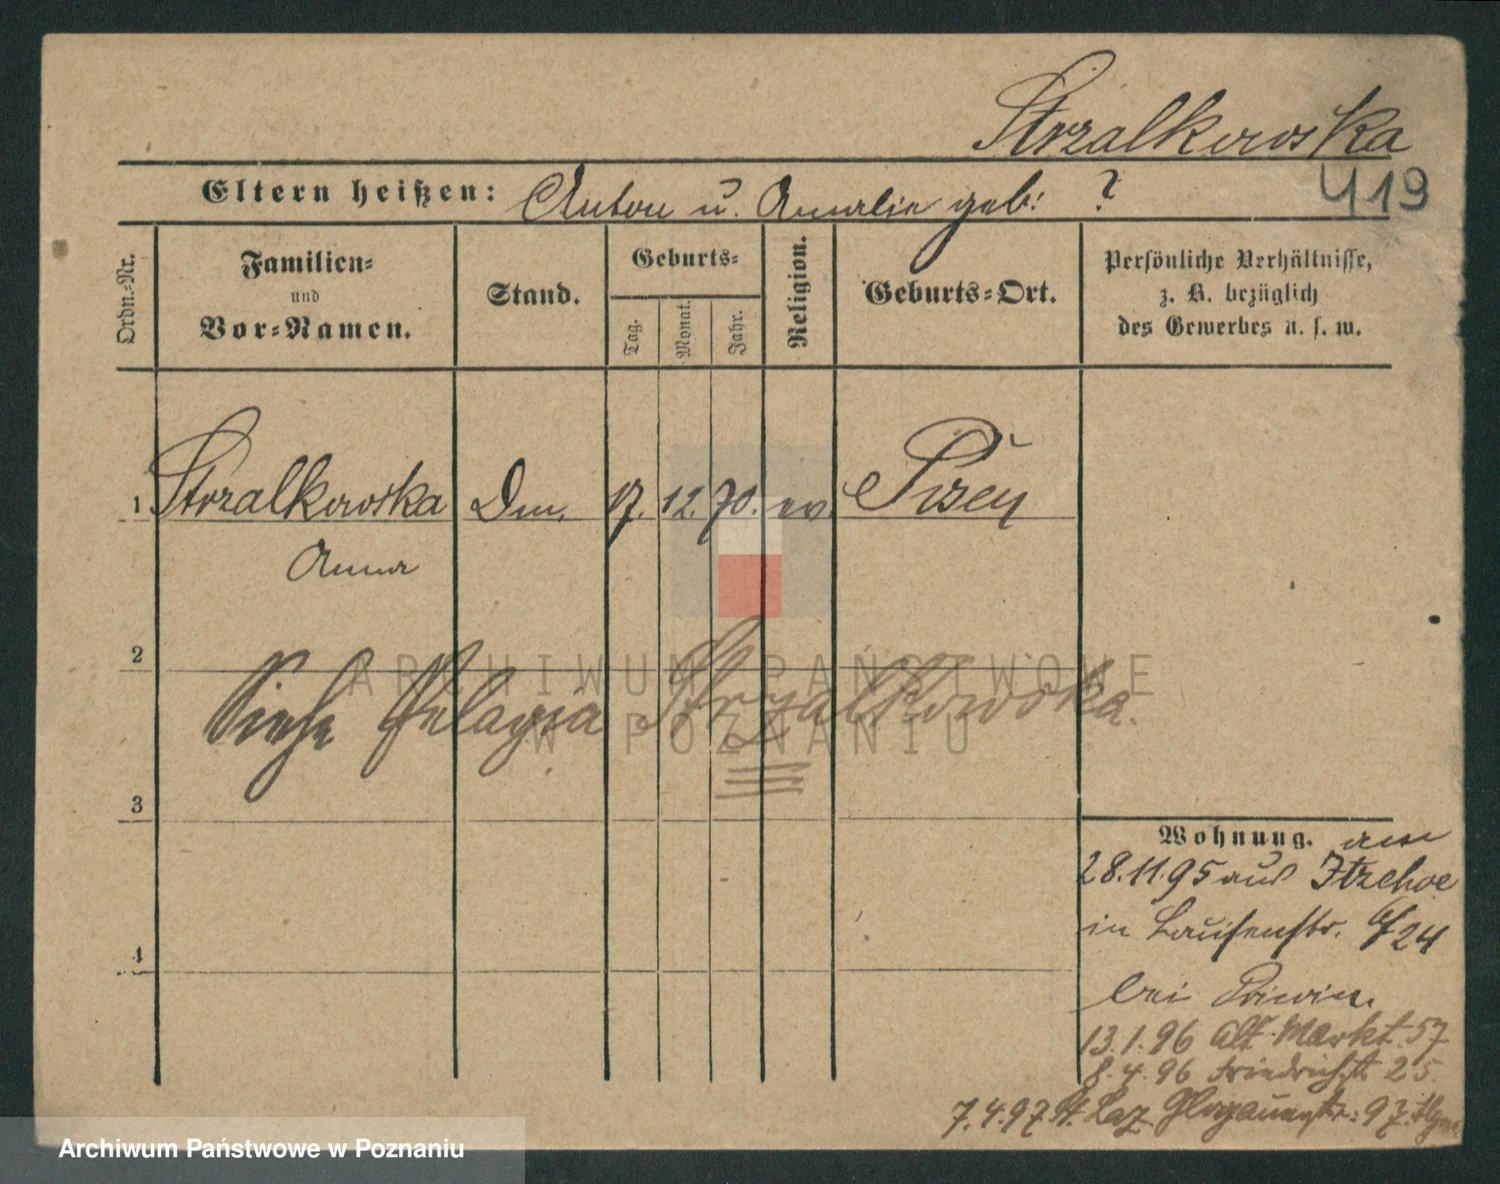 Strzalkowska
Eltern heißen: Anton u. Amalie geb: ?
419
Ordn.-Nr.
Familien-
und
Vor-Namen.
Stand.
Geburts-
Tag.
Monat.
Jahr.
Religion.
Geburts-Ort.
Persönliche Verhältnisse,
z. B. bezüglich
des Gewerbes u. s. w.
1 Strzalkowska Dm. 17. 12. 70. ev.
Anna
2
Siehe Pelagia Strzalkowska.
ARCHIWUM PAŃSTWOWE
W POZNANIU
3
Wohnung. am
28.11.95 aus Itzehoe
in 24
4
bei
13.1.96 Alt. Markt. 57
8.4.96 Friedrichstr. 25
7.4.97 St. Laz. Glogauerstr: 97.
Archiwum Państwowe w Poznaniu